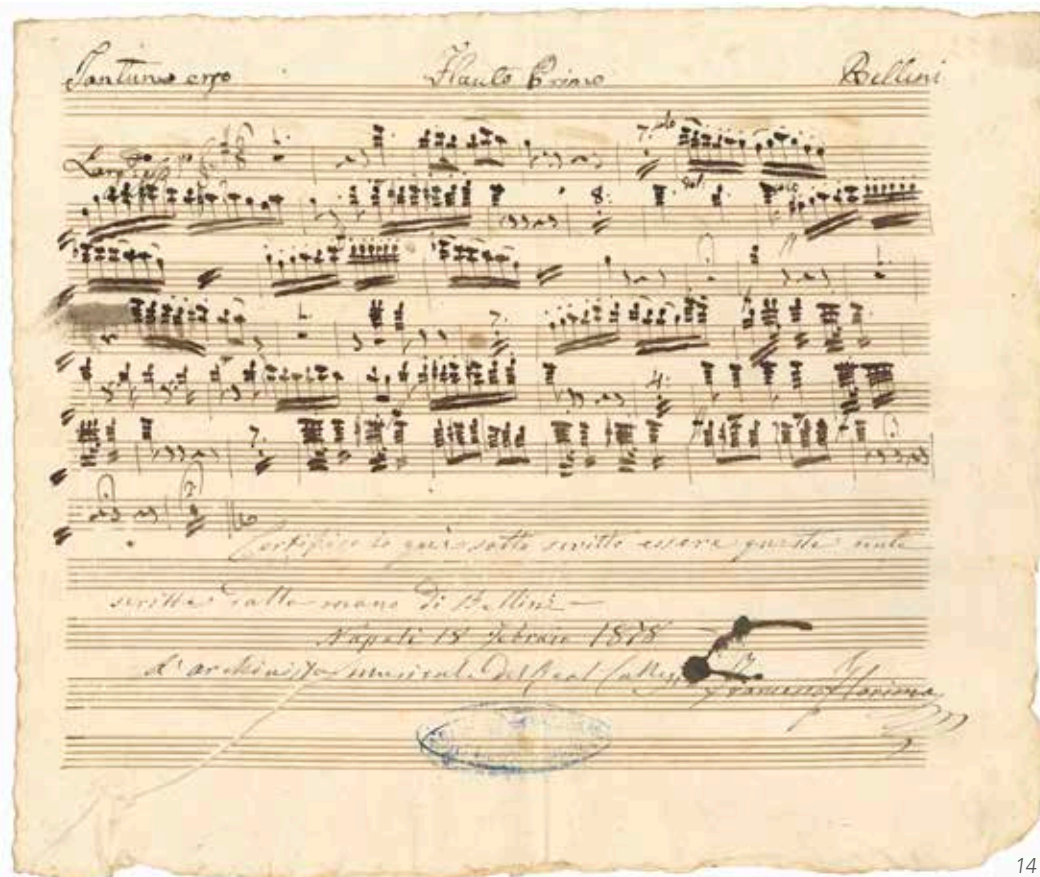 Tantum ergo Flauto Primo Bellini
Larg
7. solo
8. sol: solo
7.
4.
7.
Certifico io quì sotto scritto essere queste note
scritte dalla mano di Bellini —
Napoli 18 Febraio 1878
L'archivista musicale del Real Colleg
Francesco Florimo
14